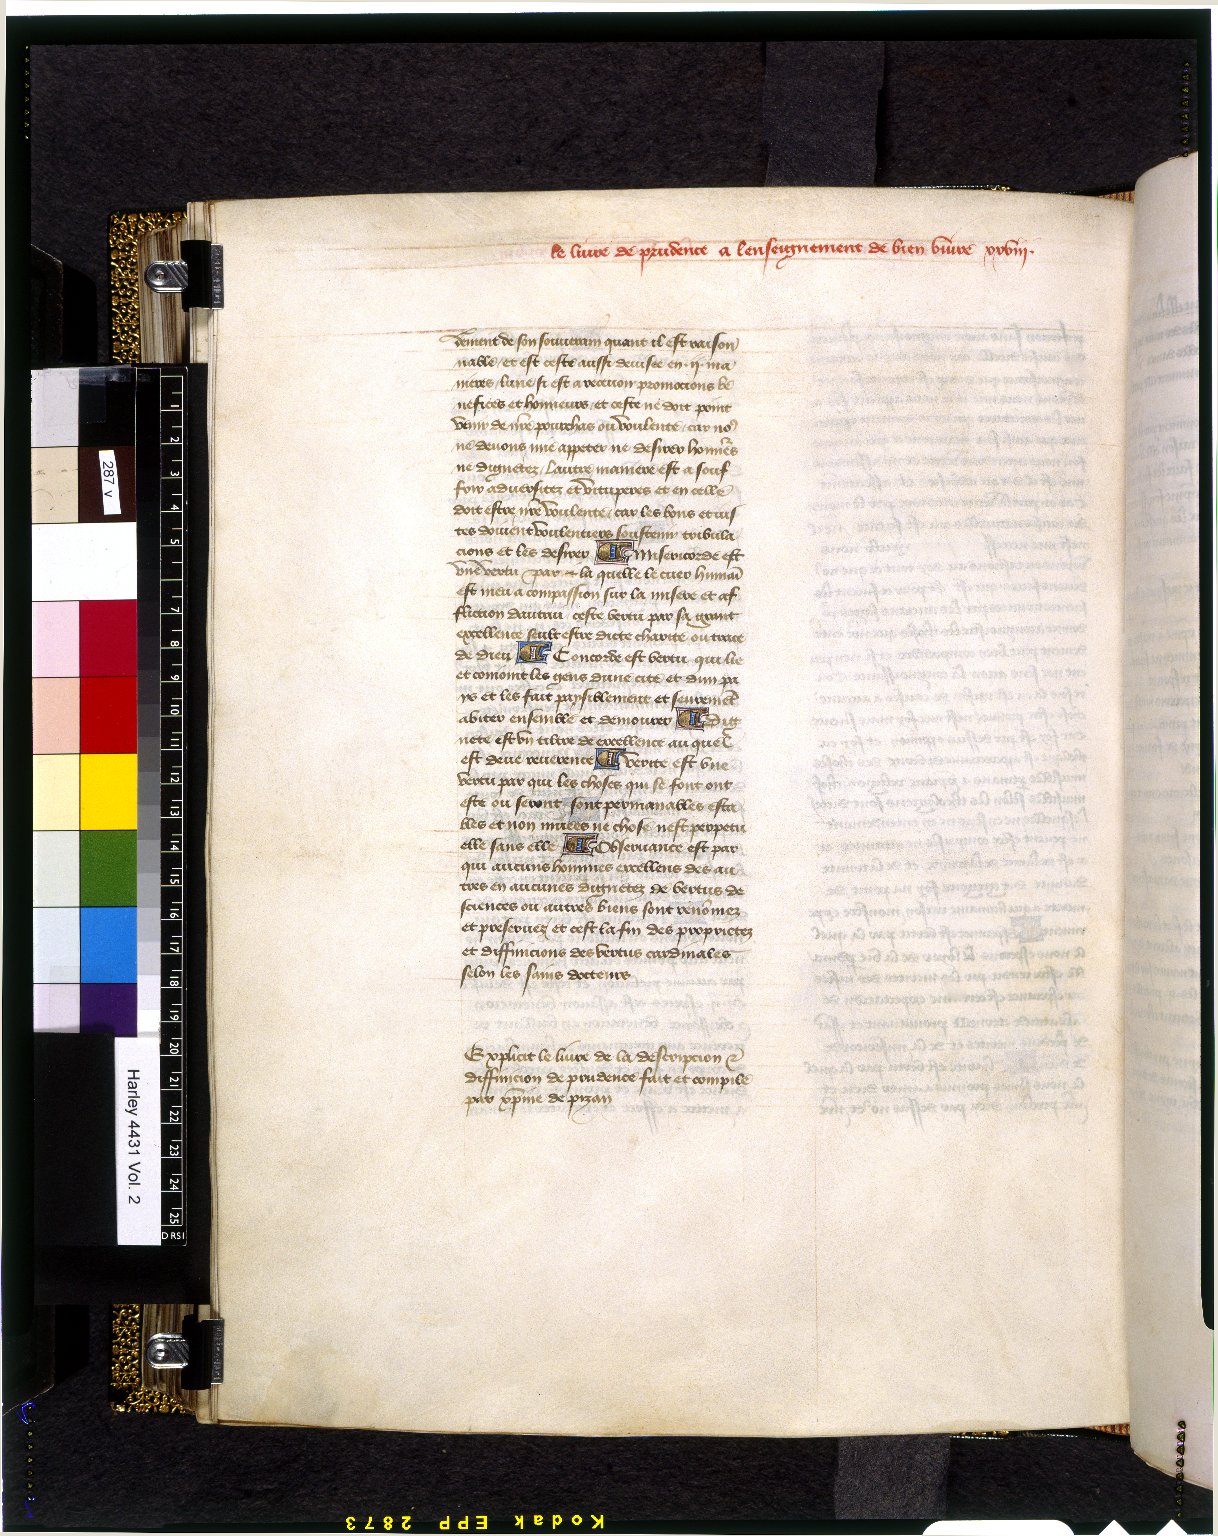 le liure de prudence a lenseignement de bien viure xxviii.
dement de son souuerain quant il est raison
nable / et est ceste aussi deuisee en .ii. ma
nieres / lune si est a receuoir promocions be
nefices et honneurs / et ceste ne doit point
venir de nre pourchas ou voulente / car no9
ne deuons mie appeter ne desirer honnes
ne dignetez / lautre maniere est a souf
frir aduersitez et vituperes et en celle
doit estre nre voulente / car les bons et ius
tes doiuent voulentiers soustenir tribula
cions et les desirer Misericorde est
vne vertu par la quelle le cuer humai
est meu a compassion sur la misere et af
fliction dautrui / ceste vertu par sa grant
excellence seult estre dicte charite ou trace
de dieu Concorde est vertu qui lie
et conioint les gens dune cite et dun pa
ys et les fait paysiblement et seuremet
abiter ensemble et demourer Dig
nete est vn tiltre de excellence au quel
est deue reuerence Verite est vne
vertu par qui les choses qui se font ont
este ou seront / sont permanables esta
bles et non muees ne chose nest perpetu
elle sans elle Obseruance est par
qui aucuns hommes excellens des au
tres en aucunes dignetez de vertus de
sciences ou autres biens sont renomez
et preseruez et cest la fin des proprietez
et diffinicions des vertus cardinales
selon les sains docteurs
Explicit le liure de la description &
diffinicion de prudence fait et compile
par xpine de pizan
287 v
Harley 4431 Vol. 2
1
2
3
4
5
7
8
9
10
11
12
13
14
15
16
17
18
19
20
21
22
23
24
25
Kodak EPP 2873